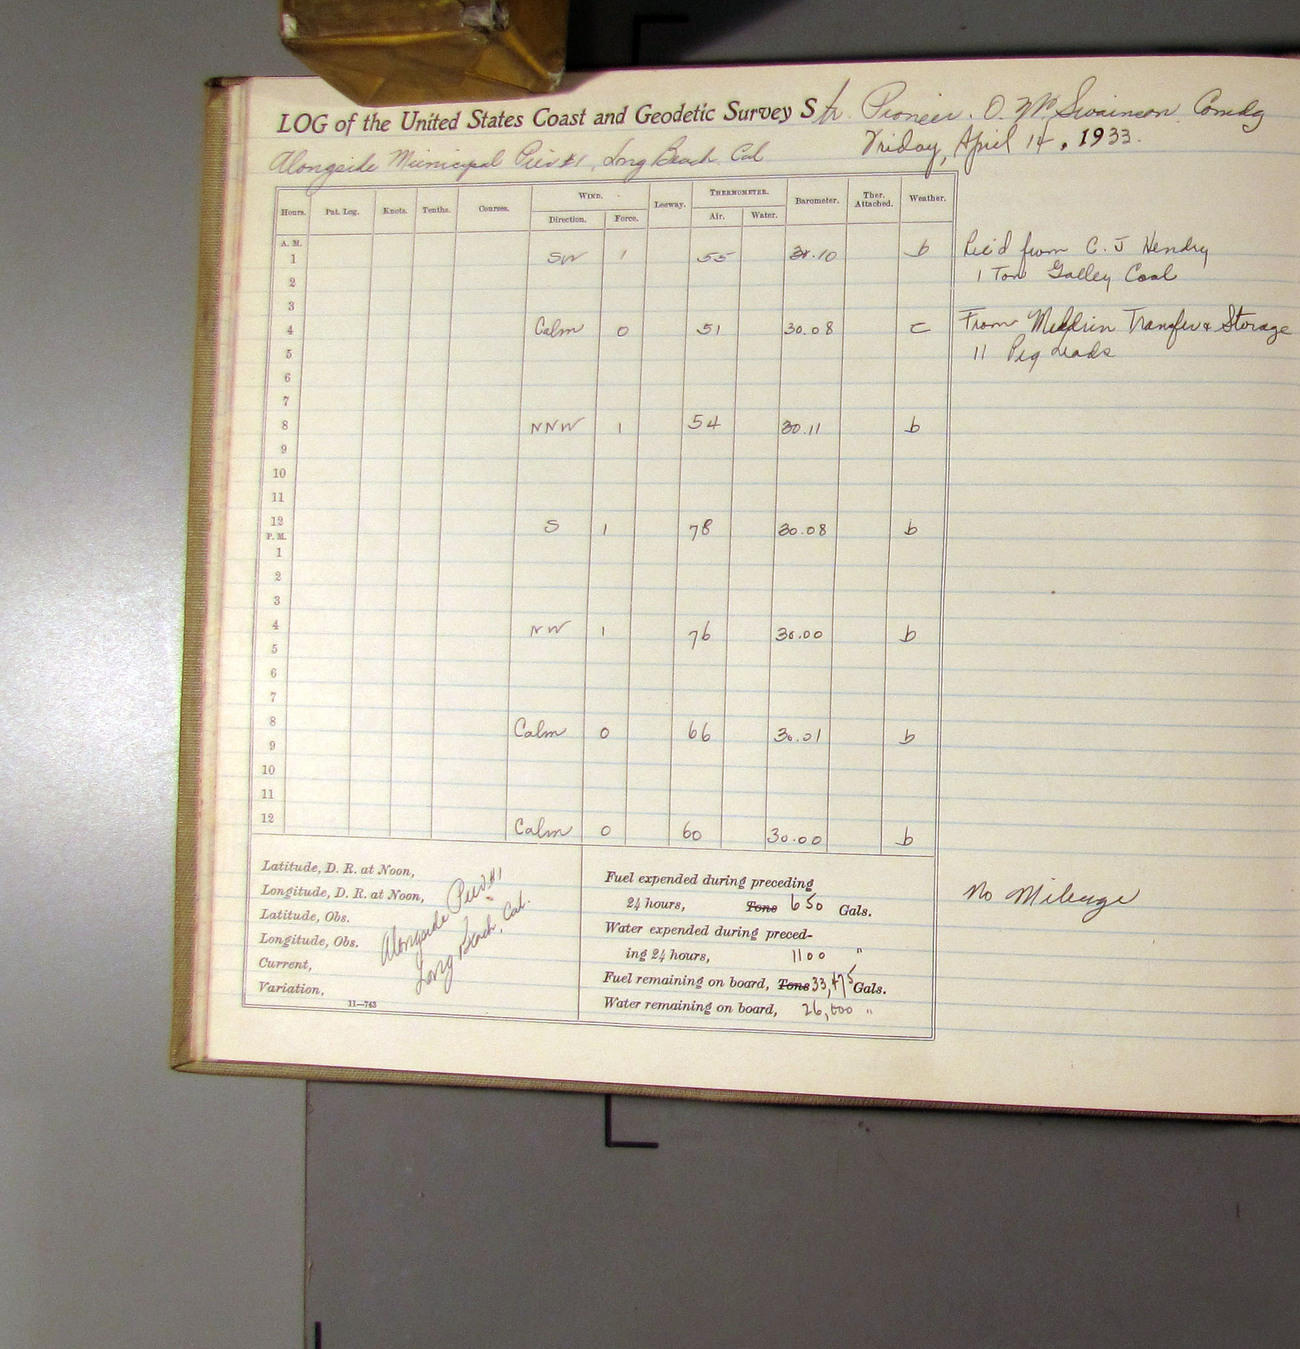 LOG of the United States Coast and Geodetic Survey Str. Pioneer. O. W. Swainson Comdg
Friday, April 14, 1933.
Alongside Municipal Pier #1, Long Beach, Cal
Hours. Pat. Log. Knots. Tenths. Courses. WIND. Leeway. THERMOMETER. Barometer. Ther. Attached. Weather.
Direction. Force. Air. Water.
A. M.
1 SW 1 55 30.10 b Rec'd from C. J Hendry
2 1 Ton Galley Coal
3
4 Calm 0 51 30.08 c From Transfer & Storage
5 11 Pig Leads
6
7
8 NNW 1 54 30.11 b
9
10
11
12 S 1 78 30.08 b
P. M.
1
2
3
4 NW 1 76 30.00 b
5
6
7
8 Calm 0 66 30.01 b
9
10
11
12 Calm 0 60 30.00 b
Latitude, D. R. at Noon,
Longitude, D. R. at Noon,
Latitude, Obs.
Longitude, Obs.
Current,
Variation,
11—763
Alongside Pier #1
Long Beach, Cal.
Fuel expended during preceding
24 hours, Tons 650 Gals.
Water expended during preced-
ing 24 hours, 1100 "
Fuel remaining on board, Tons 33,475 Gals.
Water remaining on board, 26,600 "
No Mileage